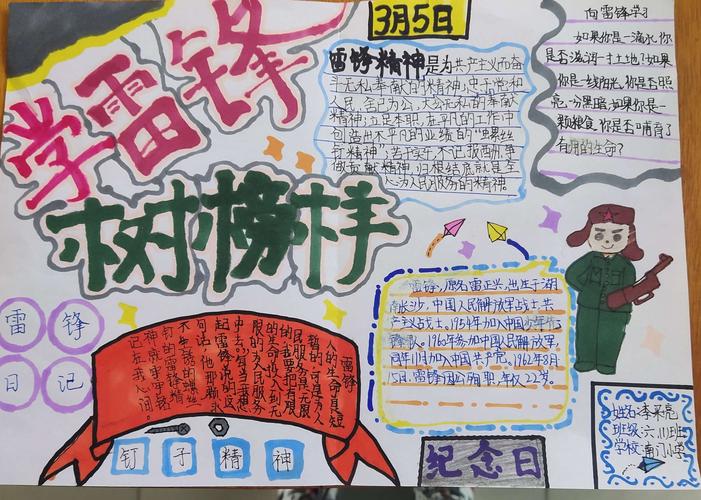 学雷锋
树榜样
3月5日
雷锋精神是为共产主义而奋
斗无私奉献的精神;忠于党和
人民、舍己为公、大公无私的奉献
精神;立足本职、在平凡的工作中
创造出不平凡的业绩的“螺丝
钉精神”;苦干实干、不计报酬、争
做贡献精神,归根结底就是全
心为人民服务的精神。
向雷锋学习
如果你是一滴水,你
是否滋润一寸土地?如果
你是一线阳光,你是否照
亮一分黑暗?如果你是一
颗粮食,你是否哺育了
有用的生命?
雷锋
日记
雷锋
人的生命是短
暂的,可是为人
民服务是无限
的,我要把有限
的生命投入到无
限的为人民服务
中去。”每当我想
起雷锋说的这
句话,
钉子精神
雷锋,原名雷正兴,出生于湖
南长沙,中国人民解放军战士,共
产主义战士。1954年加入中国少年先
锋队。1960年参加中国人民解放军,
同年11月加入中国共产党。1962年8月
15日,雷锋因公殉职,年仅22岁。
纪念日
姓名:李
班级:六.
学校:南门小学